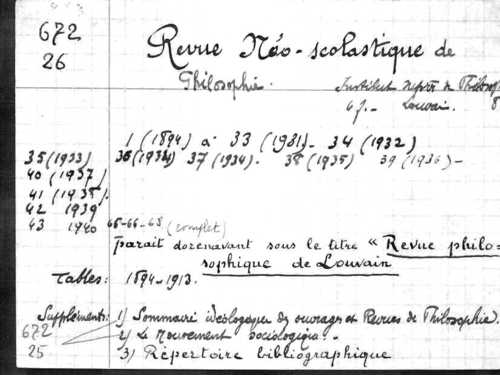 672
26
Revue Néo-scolastique de
Philosophie.
Institut supér de Philosop
67.- Louvain. 8
1 (1894) à 33 (1931)- 34 (1932)
35 (1933) 36 (1934) 37 (1934). 38 (1935) 39 (1936)-
40 (1937)
41 (1938).
42 1939
43 1940 65-66-68 (complet)
paraît dorénavant sous le titre "Revue philo=
sophique de Louvain
Tables: 1894-1913.
Suppléments: 1) Sommaire idéologique des ouvrages et Revues de Philosophie).
672 2) Le Mouvement sociologique.
25 3) Répertoire bibliographique